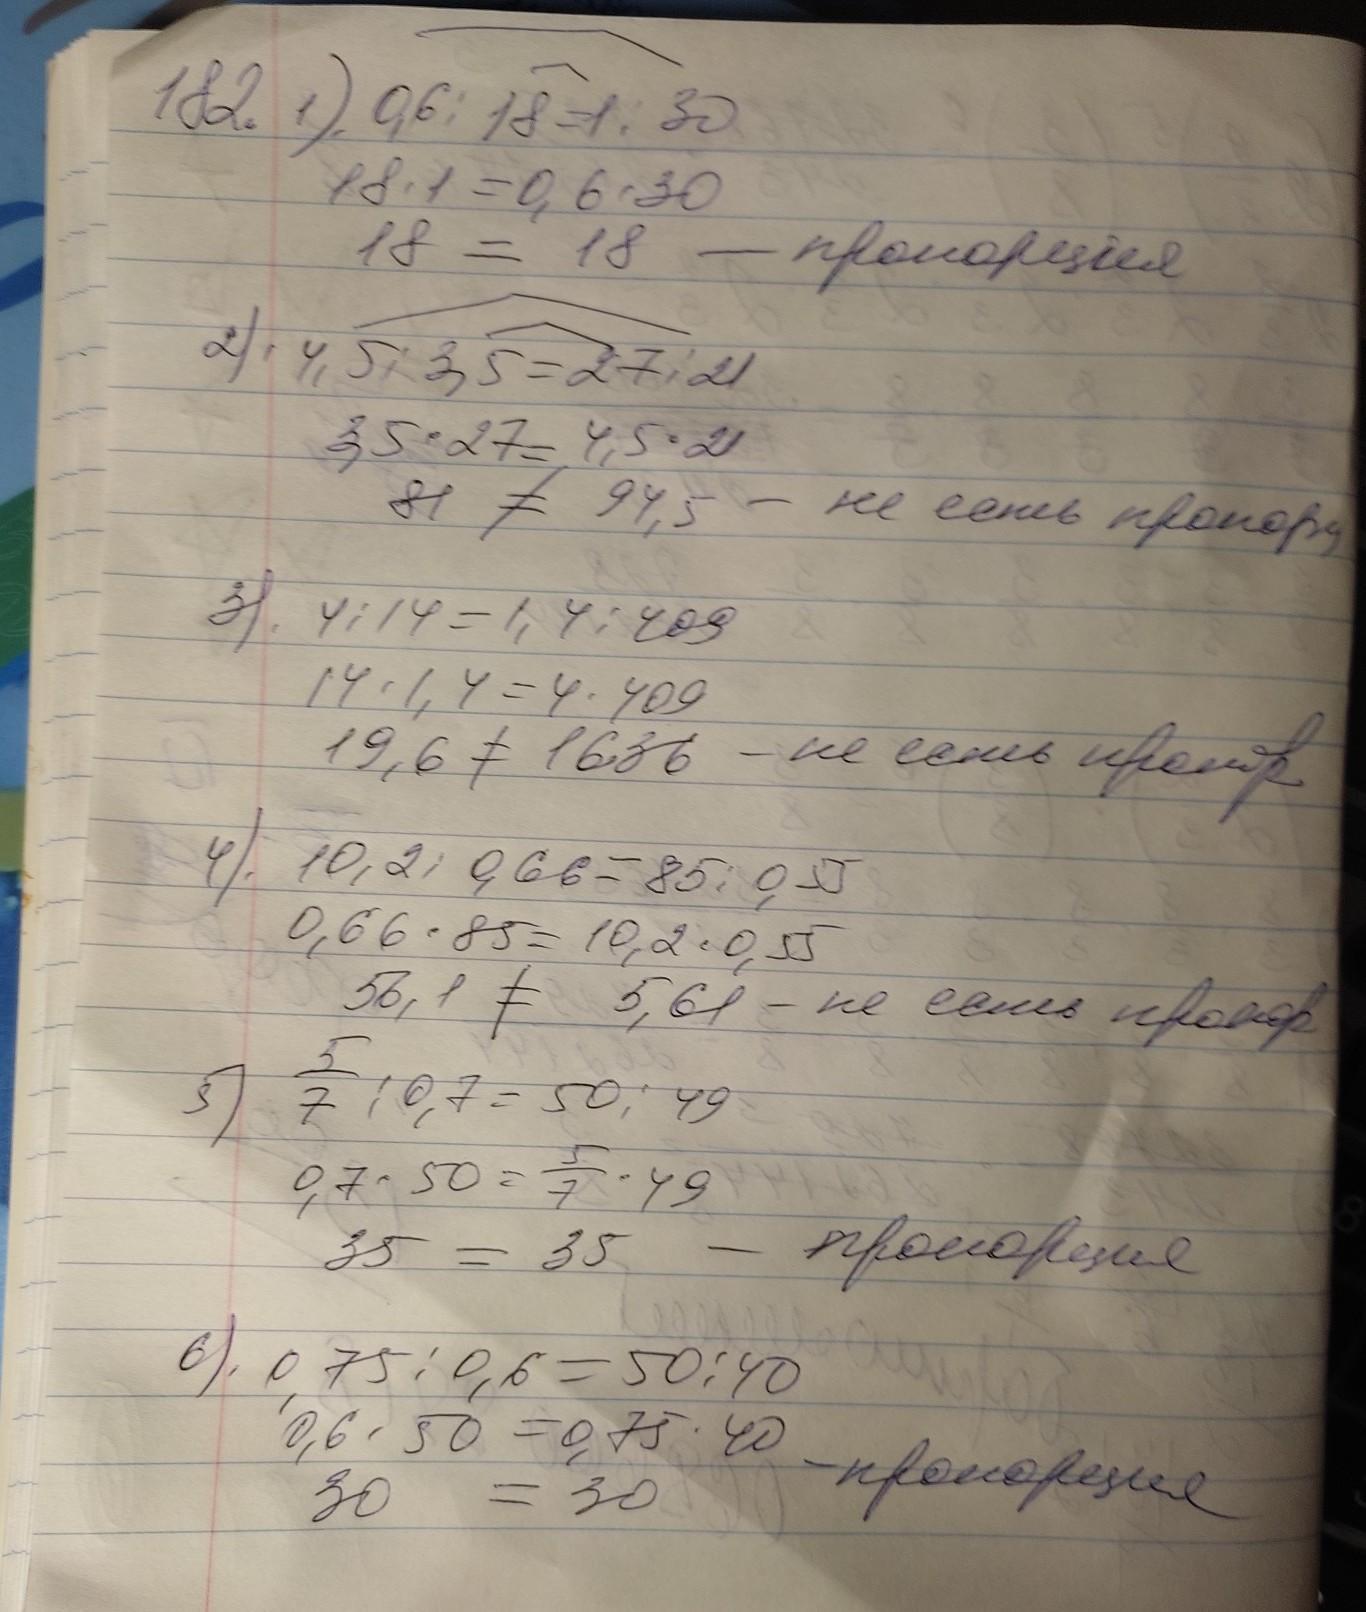 182. 1). 0,6 : 18 = 1 : 30
18 · 1 = 0,6 · 30
18 = 18 — пропорция
2). 4,5 : 3,5 = 27 : 21
3,5 · 27 = 4,5 · 21
81 ≠ 94,5 — не есть пропорц
3). 4 : 14 = 1,4 : 409
14 · 1,4 = 4 · 409
19,6 ≠ 1636 — не есть пропор
4). 10,2 : 0,66 = 85 : 0,55
0,66 · 85 = 10,2 · 0,55
56,1 ≠ 5,61 — не есть пропор
5) 5/7 : 0,7 = 50 : 49
0,7 · 50 = 5/7 · 49
35 = 35 — пропорция
6). 0,75 : 0,6 = 50 : 40
0,6 · 50 = 0,75 · 40
30 = 30 — пропорция